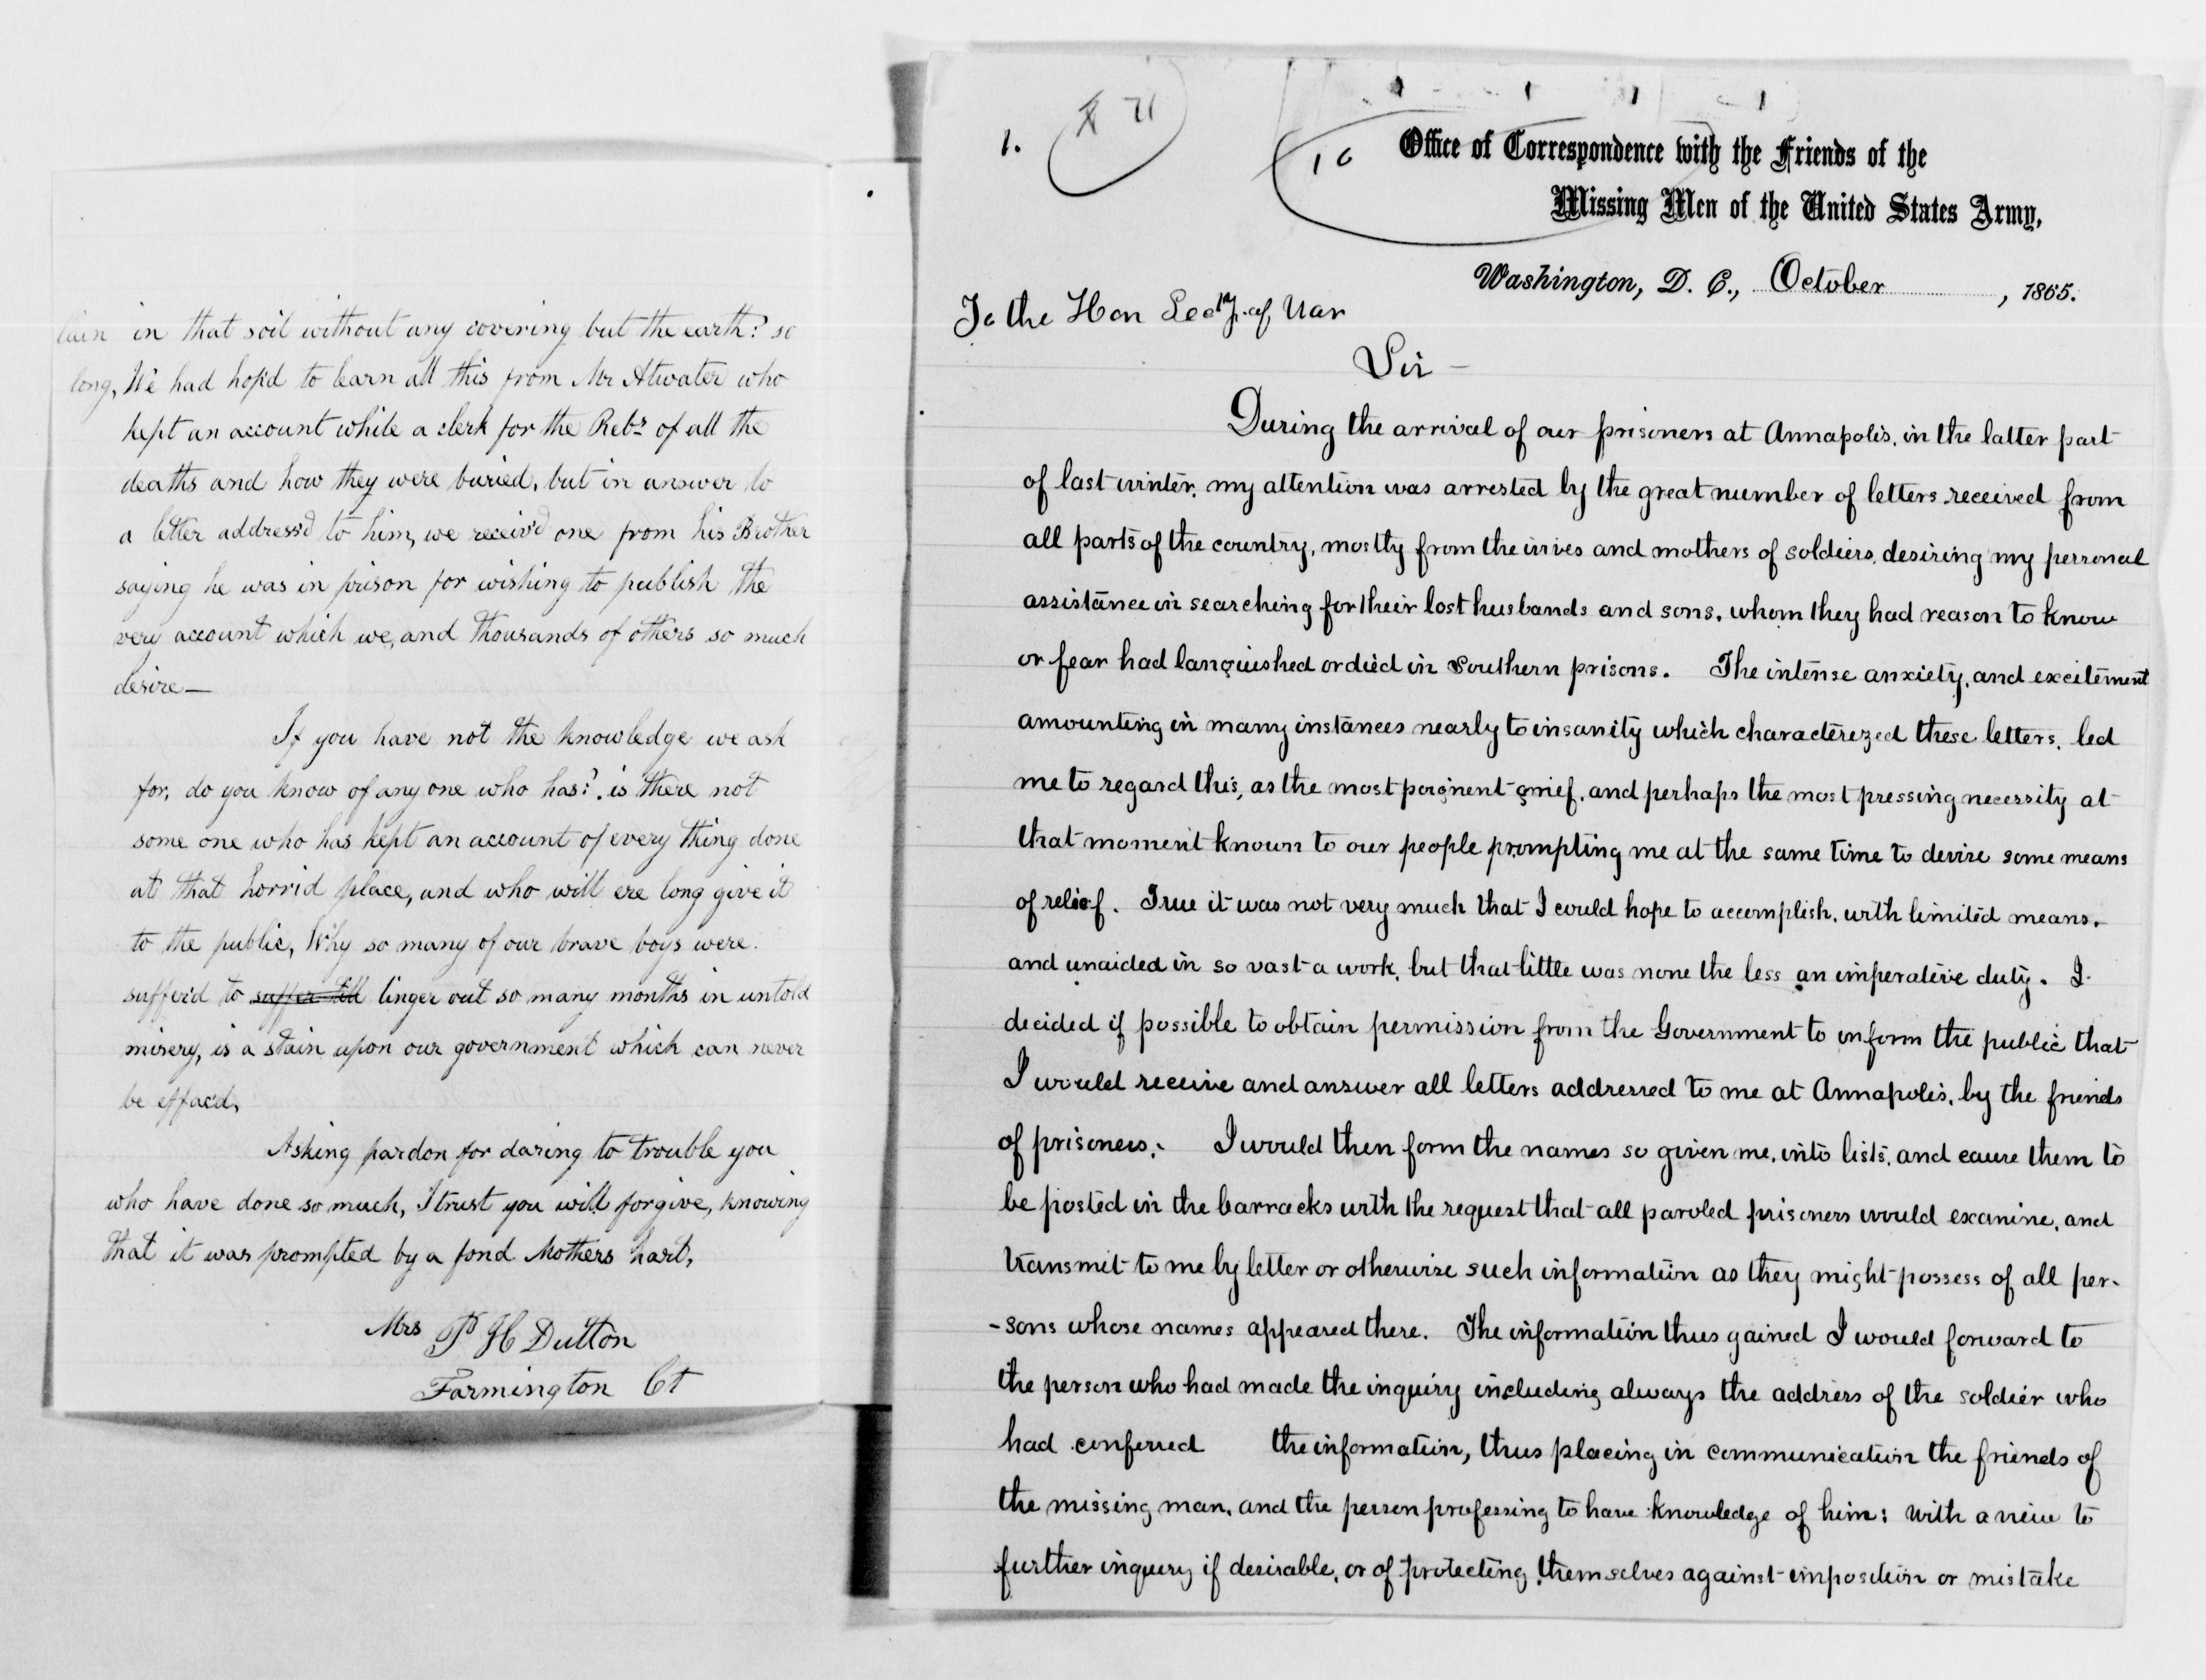 lain in that soil without any covering but the earth? so
long, We had hop'd to learn all this from Mr Atwater who
kept an account while a clerk for the Rebs of all the
deaths and how they were buried, but in answer to
a letter address'd to him, we receiv'd one from his Brother
saying he was in prison for wishing to publish the
very account which we, and thousands of others so much
desire—
If you have not the knowledge we ask
for, do you know of any one who has?. is there not
some one who has kept an account of every thing done
at that horrid place, and who will ere long give it
to the public, Why so many of our brave boys were.
suffer'd to suffer till linger out so many months in untold
misery, is a stain upon our government which can never
be effac'd,
Asking pardon for daring to trouble you
who have done so much, I trust you will forgive, knowing
that it was prompted by a fond Mothers hart,
Mrs P H Dutton
Farmington Ct
1.
10
Office of Correspondence with the Friends of the
Missing Men of the United States Army,
Washington, D. C., October , 1865.
To the Hon Secty. of War
Sir —
During the arrival of our prisoners at Annapolis, in the latter part
of last winter, my attention was arrested by the great number of letters received from
all parts of the country, mostly from the wives and mothers of soldiers, desiring my personal
assistance in searching for their lost husbands and sons, whom they had reason to know
or fear had languished or died in Southern prisons. The intense anxiety, and excitement
amounting in many instances nearly to insanity which characterized these letters, led
me to regard this, as the most poignent grief, and perhaps the most pressing necessity at
that moment known to our people prompting me at the same time to devise some means
of relief. True it was not very much that I could hope to accomplish, with limited means,
and unaided in so vast a work, but that little was none the less an imperative duty. I
decided if possible to obtain permission from the Government to inform the public that
I would receive and answer all letters addressed to me at Annapolis, by the friends
of prisoners. I would then form the names so given me, into lists, and cause them to
be posted in the barracks with the request that all paroled prisoners would examine, and
transmit to me by letter or otherwise such information as they might possess of all per-
-sons whose names appeared there. The information thus gained I would forward to
the person who had made the inquiry including always the address of the soldier who
had conferred the information, thus placing in communication the friends of
the missing man, and the person professing to have knowledge of him: with a view to
further inquiry if desirable, or of protecting themselves against imposition or mistake